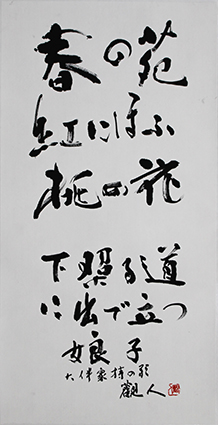 春の苑
紅にほふ
桃の花
下照る道
に出で立つ
娘子
大伴家持の歌
觀人